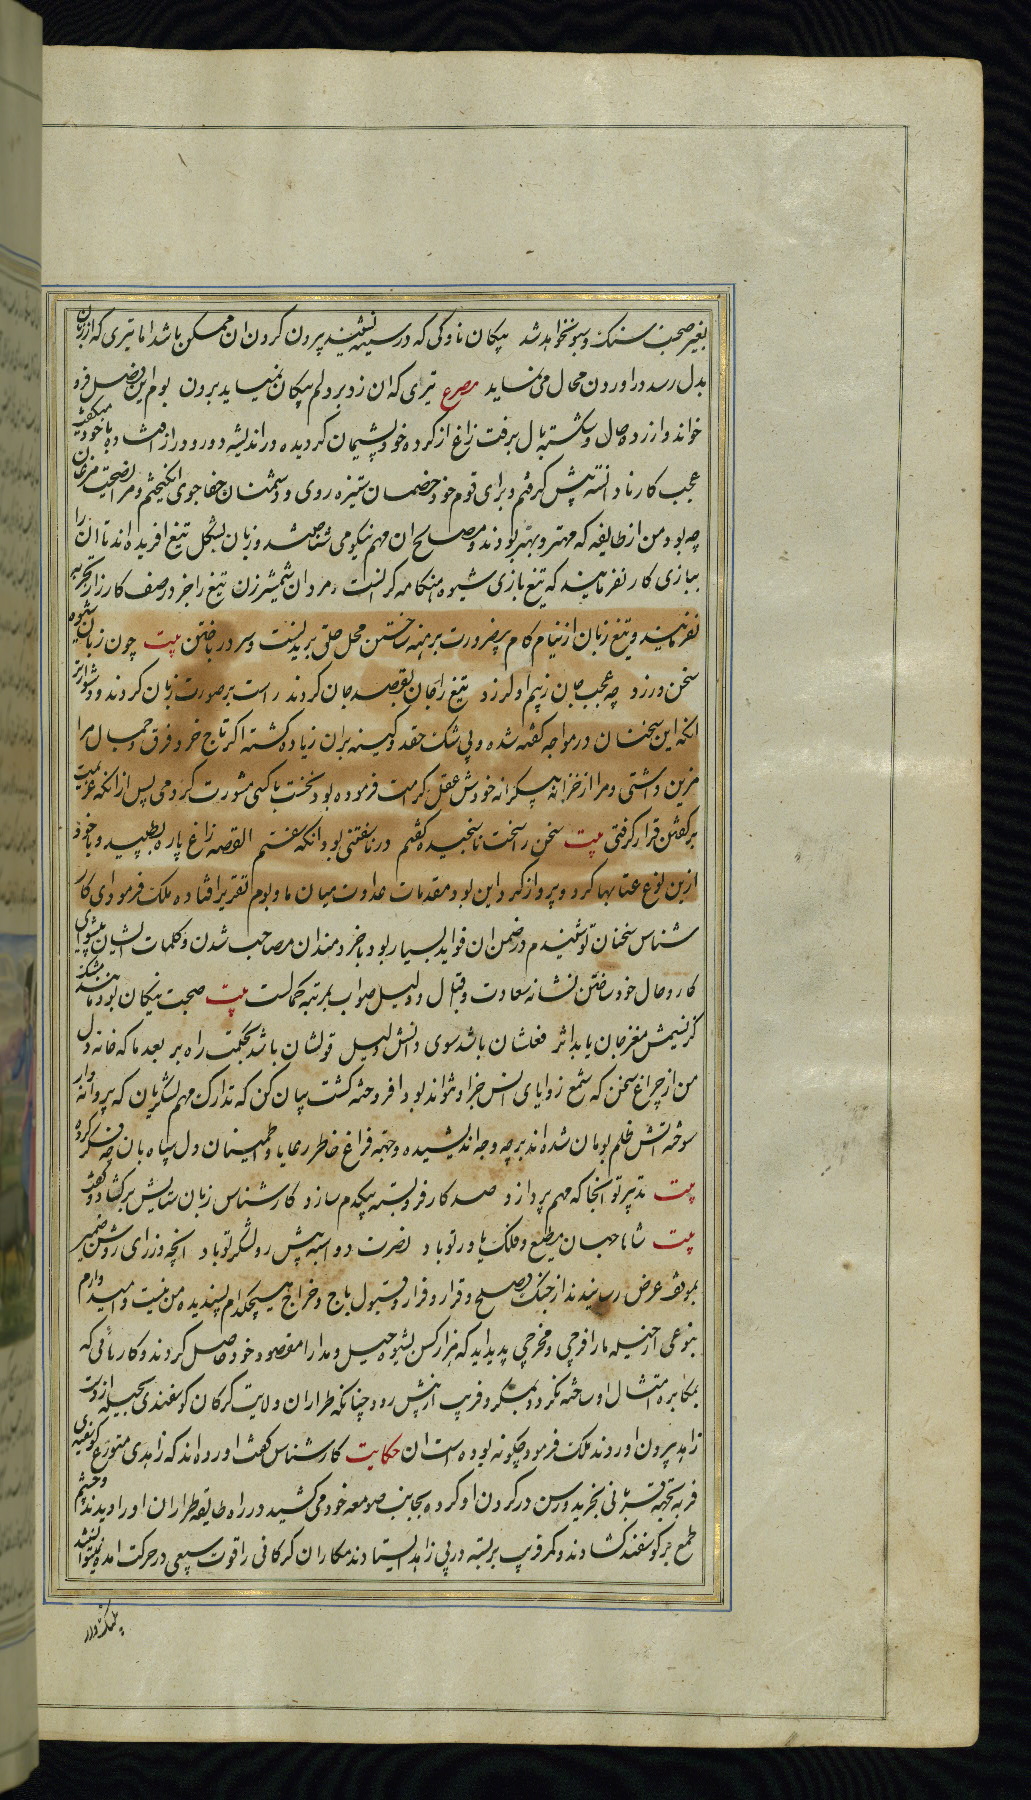 بغیر صحبت سنک و سبو نخواهد شد پیکان ناوکی که در سینه نشیند بیرون کردن ان ممکن باشد اما تیری که از زبان
بدل رسد در اوردن محال می نماید مصرع تیری که ان زد بر دلم پیکان نمیاید برون بوم این فصل فرو
خواند و ازرده حال و شکسته بال برفت زاغ از کرده خود پشیمان کردیده در اندیشه دور و دراز افتاده با خود میکفت
عجب کار نادانسته پیش کرفتم و برای قوم خود خصمان ستیزه روی و دشمنان جفاجوی انکیختم و مرا نصیحت مرغان
چه بود من از طایفه که مهتر و بهتر بودند و مصالح ان مهم نیکو می شناختند و زبان بشکل تیغ افریده اند تا ان را
ببازی کار نفرمایند که تیغ بازی شیوه هنکامه کرانست مردان شمشیرزن تیغ را جز در صف کارزار تجربه
نفرمایند و تیغ زبان از نیام کام بی ضرورت برهنه ساختن محل حلق بریدنست و سر در باختن بیت چون زبان شیوه
سخن ورزد چه عجب جان ز بیم او لرزد تیغ را جان بقصد جان کردند راست بر صورت زبان کردند و دشوارتر
انکه این سخنان در مواجه کفته شده و بی شک حقد و کینه بران زیاده کشته اکر تاج خرد فرق و جمال مرا
مزین داشتی و مرا از خزانه بیکرانه خودش عقل کرامت فرموده بود نخست با کسی مشورت کردمی پس از انکه عزیمت
بر کفتن قرار کرفتی بیت سخن راست ناسنجیده کفتم در ناسفتنی بود انکه سفتم القصه زاغ پاره بطپید و با خود
ازین نوع عتابها کرد و پرواز کرد این بود مقدمات عداوت میان ما و بوم تقریر افتاده ملک فرمود ای کار
شناس سخنان تو شنیدم در ضمن ان فواید بسیار بود با خردمندان مصاحب شدن و کلمات ایشان پیشوای
کار و حال خود ساختن نشانه سعادت و اقبال و دلیل صواب بمرتبه کمالست بیت صحبت نیکان بود مانند مشک
کز نسیمش مغز جان یابد اثر فعلشان باشد سوی دانش دلیل قولشان باشد بحکمت راه بر بعد ما که خانه دل
من از چراغ سخن که شمع زوایای انس جز او نتواند بود افروخته کشت بیان کن که تدارک مهم لشکریان که پروانه وار
سوخته اتش ظلم بومان شده اند بر چه وجه اندیشیده و جهة فراغ خاطر رعایا و اطمینان دل سپاه بان چه فکر کرده
بیت تدبیر تو انجا که مهم پردازد صد کار فرو بسته بیکدم سازد کارشناس زبان ستایش برکشاد و کفت
بیت شاها جهان مطیع و فلک یاور تو باد نصرت دو اسبه پیش رو لشکر تو باد انچه وزرای روشن ضمیر
بموقف عرض رسانیدند از جنک و صلح و قرار و فرار و قبول باج و خراج هیچکدام پسندیده من نیست و امید دارم
بنوعی از حیله ما را فرجی و مخرجی پدید اید که هزار کس بشیوه حیل و مدارا مقصود خود حاصل کردند و کارهائی که
بمکابره امثال او ساخته نکردد بمکر و فریب از پیش رود چنانکه طراران ولایت کرکان کوسفندی بحیله از دست
زاهد بیرون اوردند ملک فرمود چکونه بوده است ان حکایت کارشناس کفت اورده اند که زاهدی متورع کوسفندی
فربه بجهة قربانی بخرید و رسن در کردن او کرده بجانب صومعه خود می کشید در راه طایفه طراران او را دیدند و چشم
طمع بر کوسفند کشادند و کمر فریب بر بسته در پی زاهد ایستادند مکاران کرکانی را قوت سبعی در حرکت امد و نتوانستند